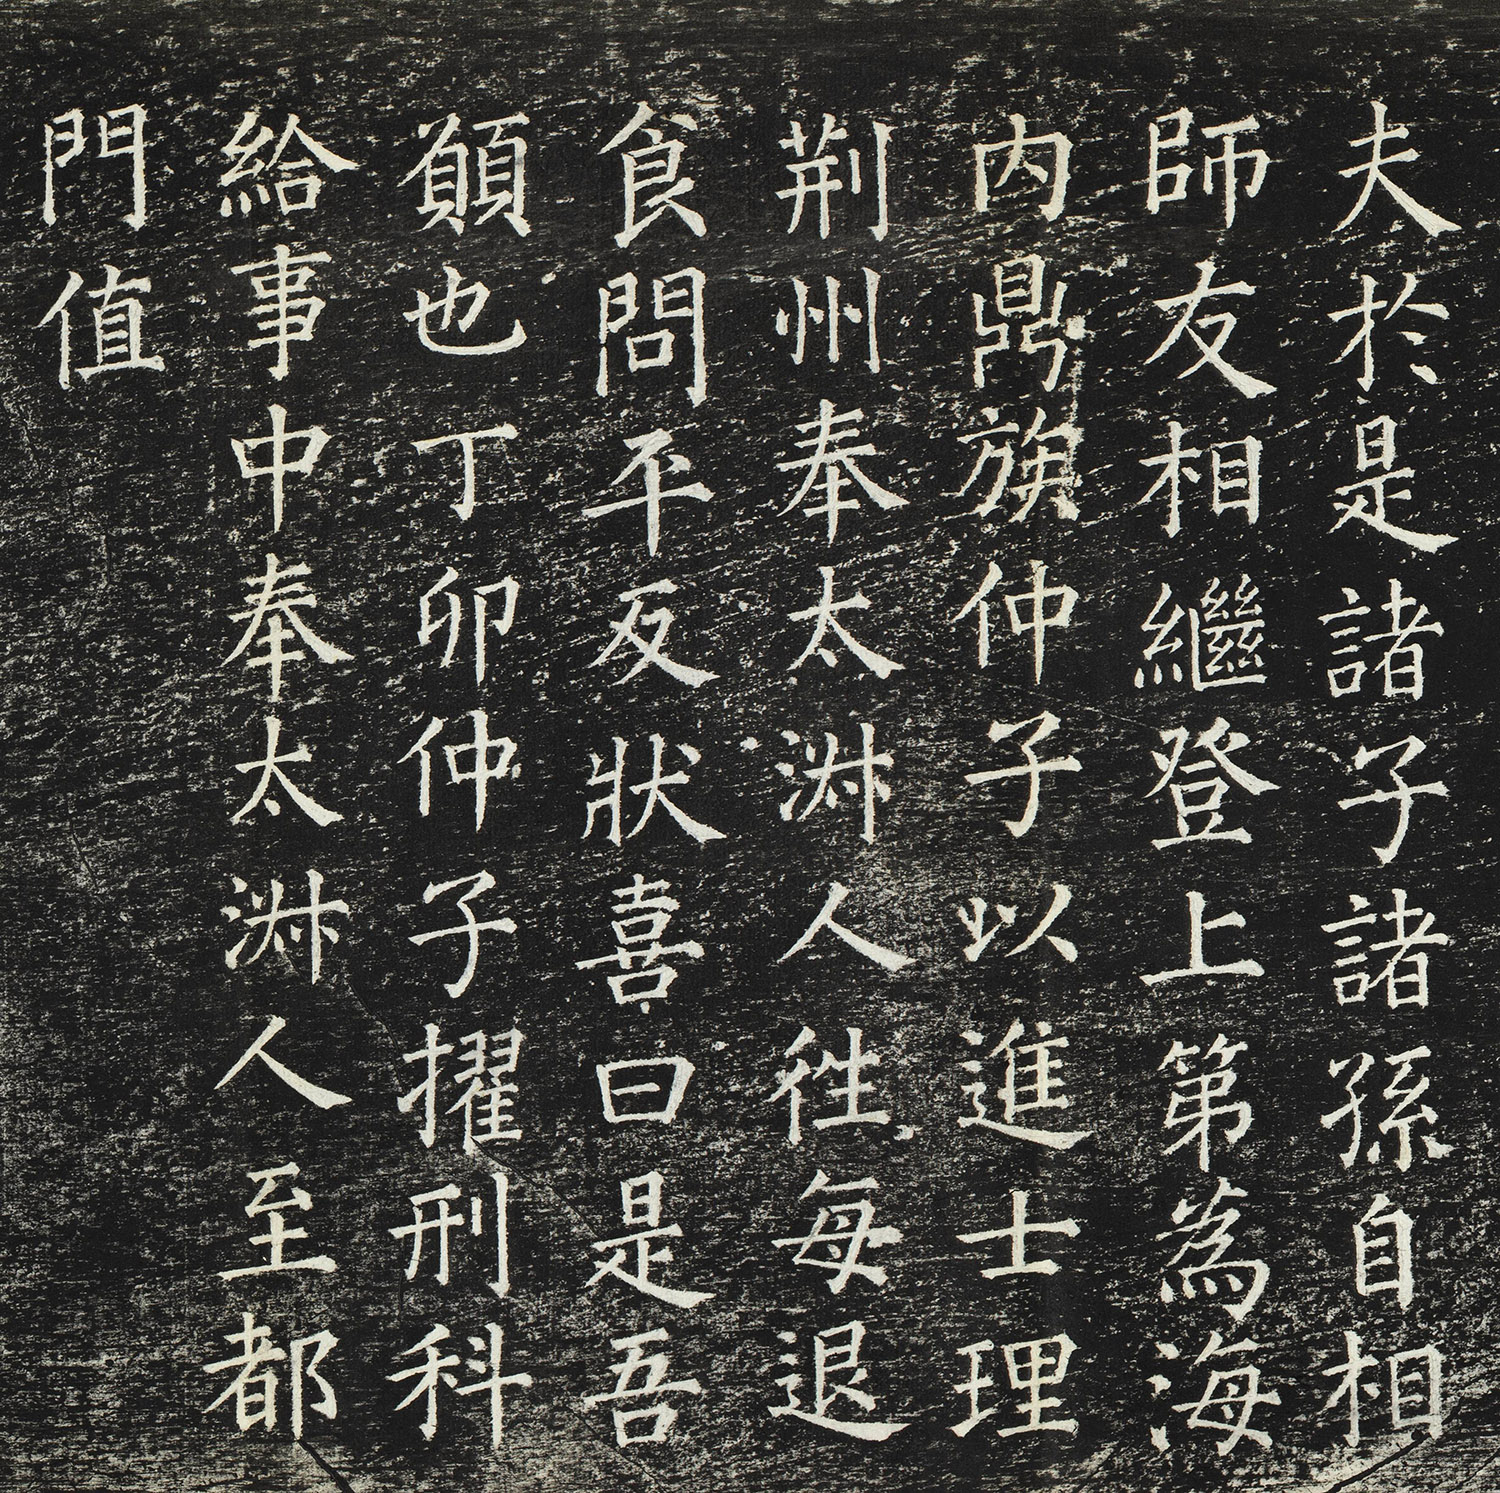 夫於是諸子諸孫自相
師友相繼登上第為海
内鼎族仲子以進士理
荆州奉太淋人徃每退
食問平反狀喜曰是吾
願也丁卯仲子擢刑科
給事中奉太淋人至都
門值